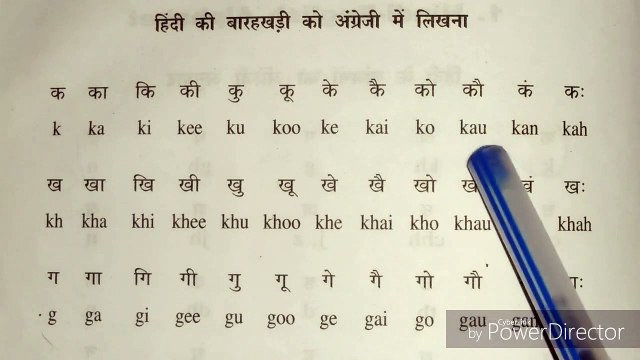 हिंदी की बारहखड़ी को अंग्रेजी में लिखना
क का कि की कु कू के कै को कौ कं कः
k ka ki kee ku koo ke kai ko kau kan kah
ख खा खि खी खु खू खे खै खो खः
kh kha khi khee khu khoo khe khai kho khau khah
ग गा गि गी गु गू गे गै गो गौ
g ga gi gee gu goo ge gai go gau
by PowerDirector